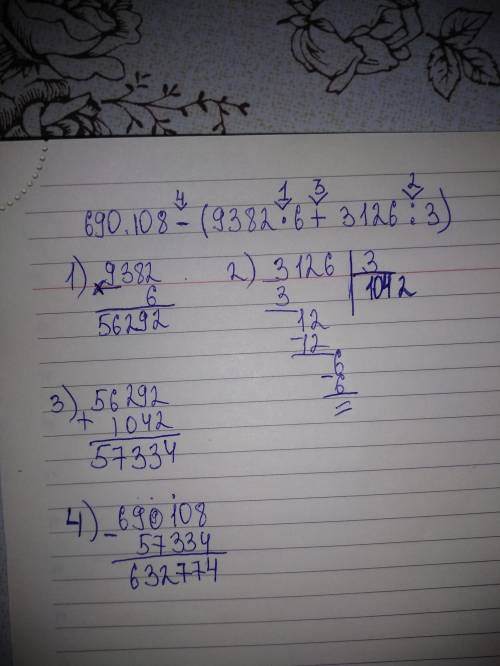 4 1 3 2
690.108 - (9382 · 6 + 3126 : 3)
1) 9382
× 6
56292
2) 3126 | 3
3 1042
12
-12
6
-6
=
3) 56292
+ 1042
57334
4) - 690108
57334
632774